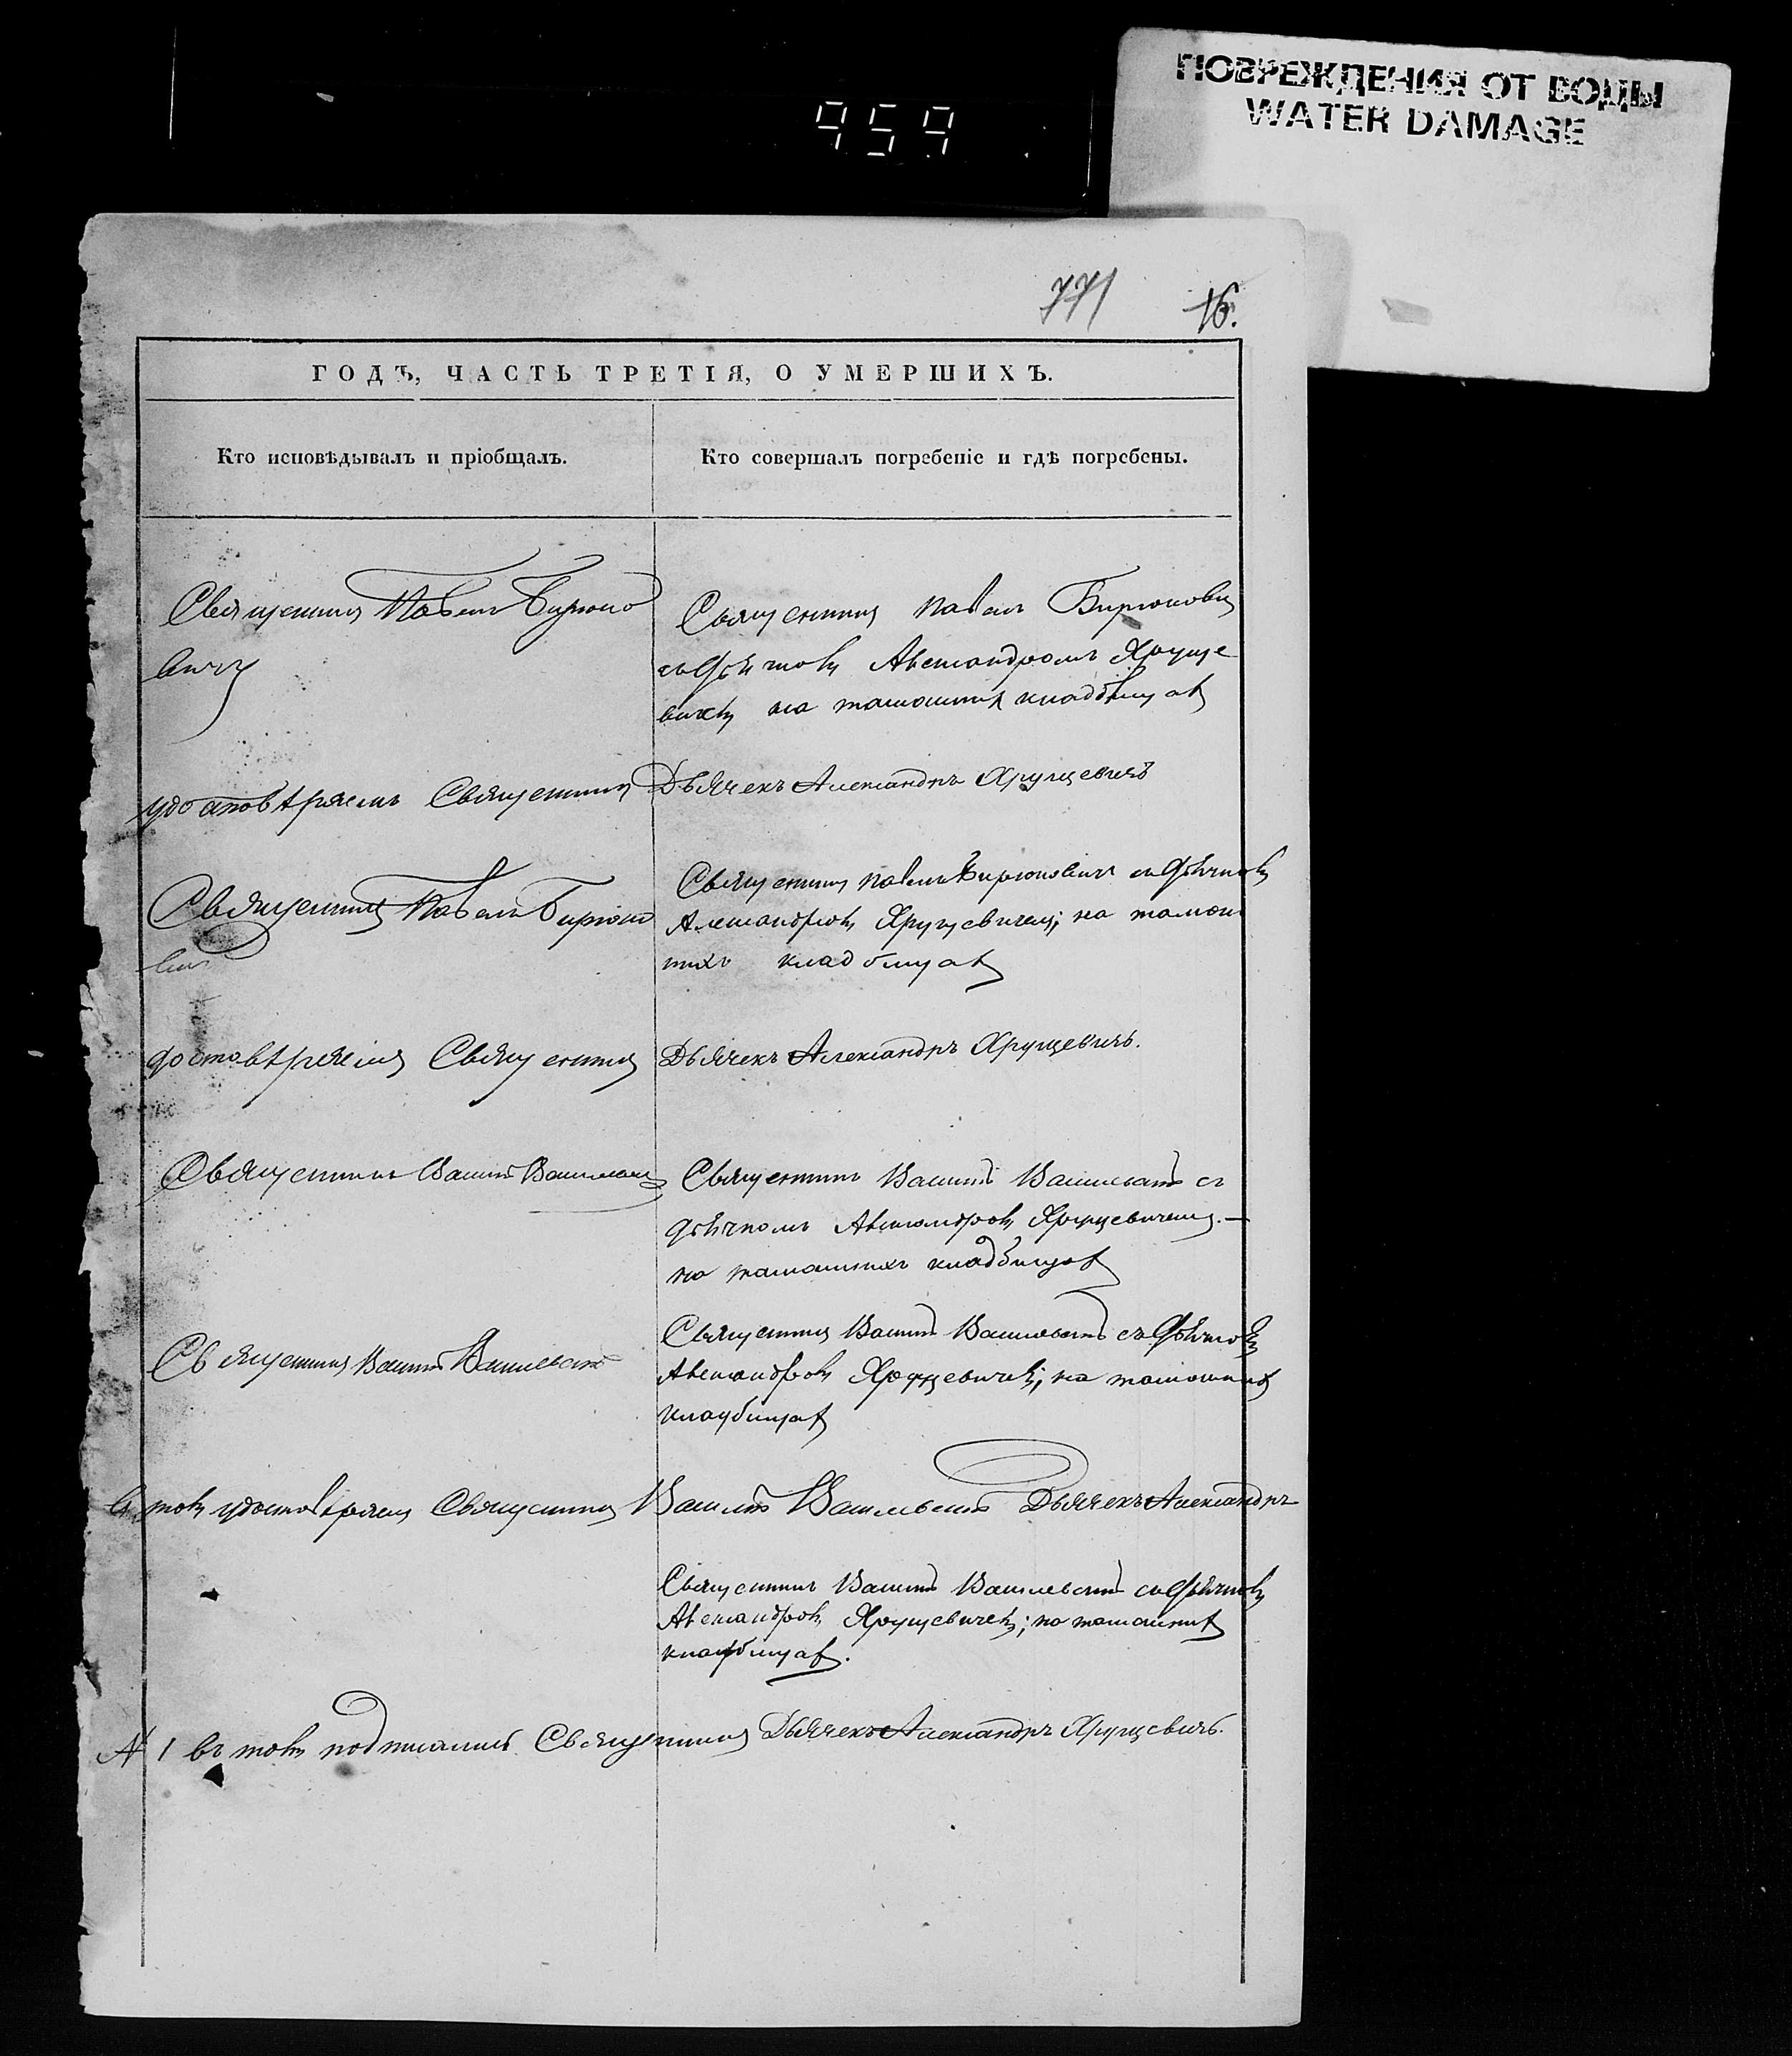 ПОВРЕЖДЕНИЯ ОТ ВОДЫ
WATER DAMAGE
959
771 16.
ГОДЪ, ЧАСТЬ ТРЕТІЯ, О УМЕРШИХЪ.
Кто исповѣдывалъ и пріобщалъ.
Кто совершалъ погребеніе и гдѣ погребены.
Священникъ Павелъ Бирюко
вичъ
Священникъ Павелъ Бирюковичъ
съ дьячкомъ Александромъ Хруце
вичемъ на тамошнихъ кладбищахъ
удостовѣряемъ Священникъ
Дьячекъ Александръ Хруцевичъ
Священникъ Павелъ Бирюко
вичъ
Священникъ Павелъ Бирюковичъ съ дьячкомъ
Александромъ Хруцевичемъ; на тамош
нихъ кладбищахъ
достовѣряемъ Священникъ
Дьячекъ Александръ Хруцевичъ.
Священникъ
Священникъ съ
дьячкомъ Александромъ Хруцевичемъ. —
на тамошнихъ кладбищахъ
Священникъ
Священникъ съ дьячкомъ
Александромъ Хруцевичемъ; на тамошнихъ
кладбищахъ
въ томъ удостовѣряемъ Священникъ Дьячекъ Александръ
Священникъ съ дьячкомъ
Александромъ Хруцевичемъ; на тамошнихъ
кладбищахъ.
№ 1 въ томъ подписались Священникъ Дьячекъ Александръ Хруцевичъ.